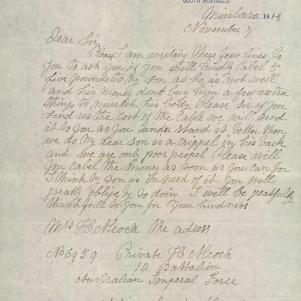 SOUTH AUSTRALIA
Mintaro 1918
November 7
Dear Sir
Please I am writing these few lines to
you to ask you if you will kindly cable 5
five pounds to My son as he is not well
and his money dont buy him a few extra
things to nourish his body Please sir if you
send us the cost of the Cable we will send
it to you as you under stand it better then
we do My dear son is a crippel in his back
and we are only poor peopel Please will
you Cable the money as soon as you can for
I think my son is in need of it you will
greatly oblige by so doing I will be greatfuly
thankfull to you for your kindness
Mrs H Alcock the adress
No 6959 Private H Alcock
10 Battalion
Australian Imperal Force